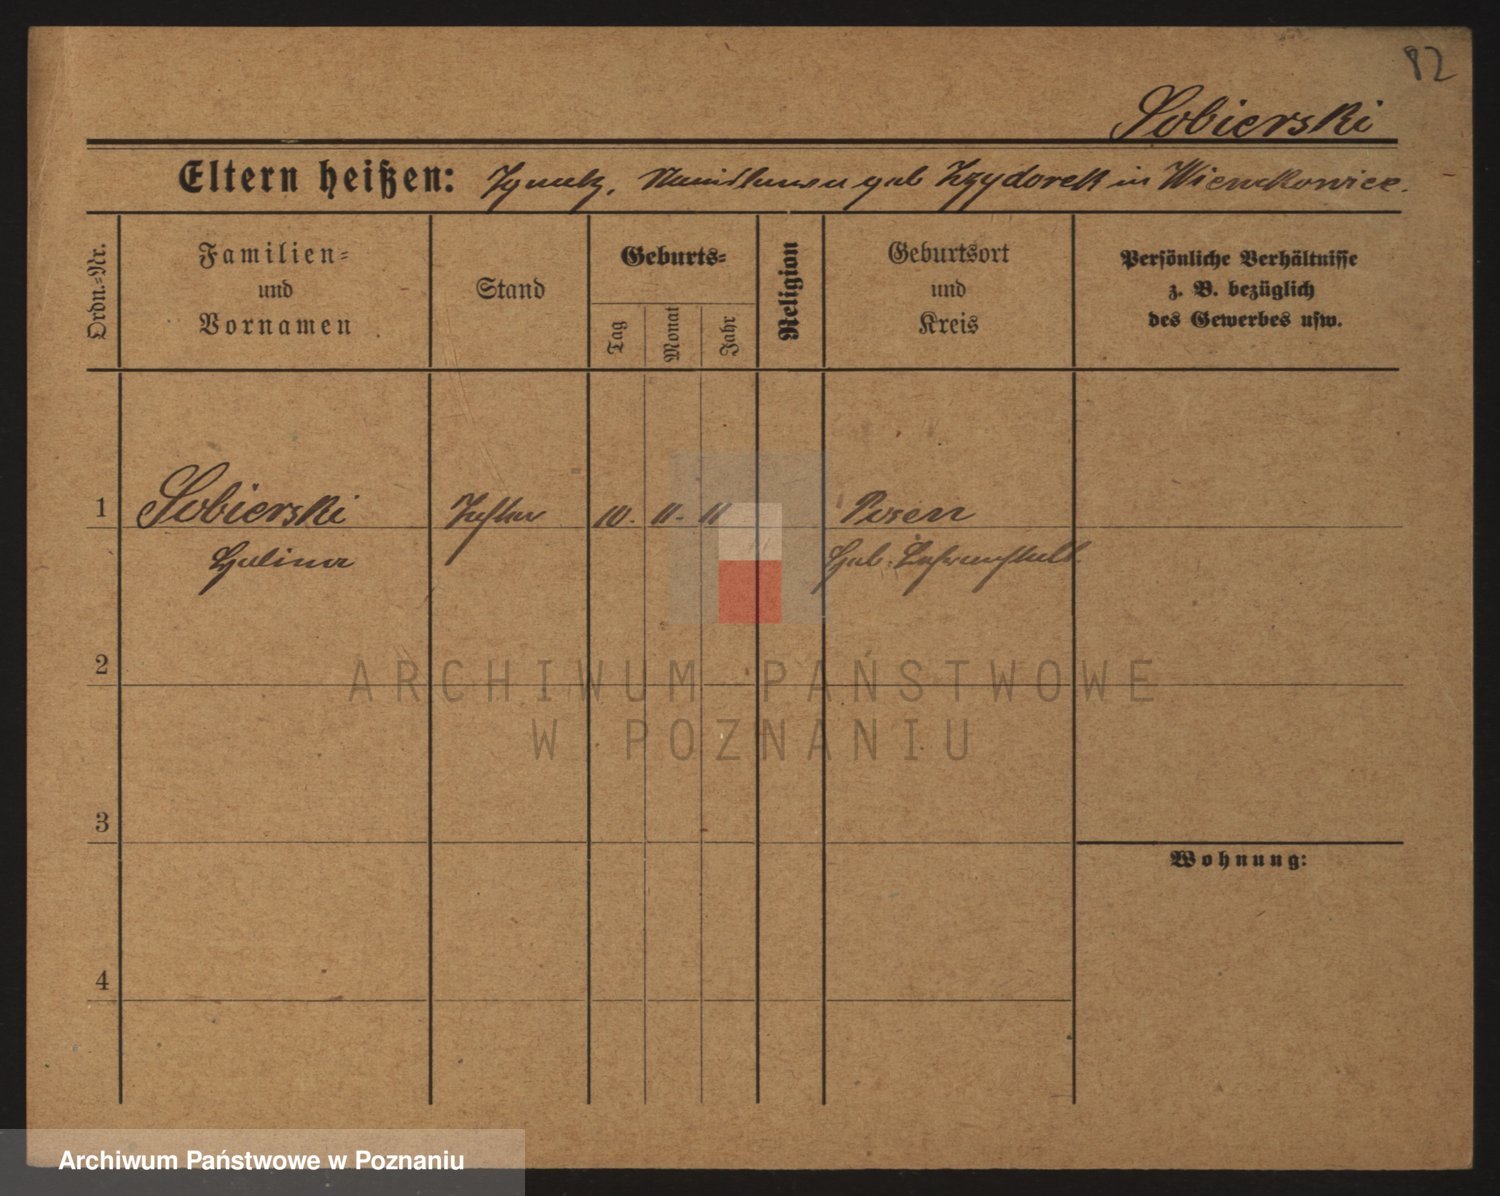 82
Sobierski
Eltern heißen: Ignatz, Stanislawa geb Izydorek in Wienckowice.
Ordn.-Nr.
Familien- und Vornamen
Stand
Geburts-
Tag
Monat
Jahr
Religion
Geburtsort und Kreis
Persönliche Verhältnisse
z. B. bezüglich
des Gewerbes usw.
1 Sobierski Tochter 10. 11. 11 Posen
Halina Heb. Lehranstalt
2
ARCHIWUM PAŃSTWOWE
W POZNANIU
3
Wohnung:
4
Archiwum Państwowe w Poznaniu